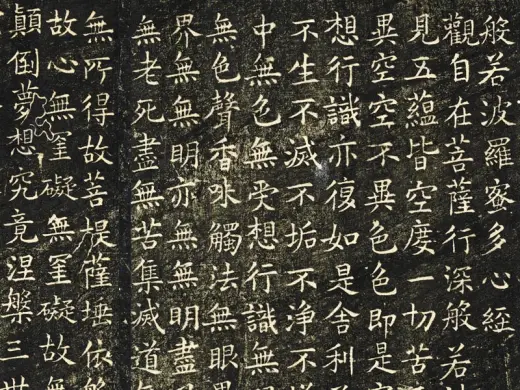 般若波羅蜜多心經
觀自在菩薩行深般若
見五蘊皆空度一切苦
異空空不異色色即是
想行識亦復如是舍利
不生不滅不垢不淨不
中無色無受想行識無
無色聲香味觸法無眼界
界無無明亦無無明盡
無老死盡無苦集滅道
無所得故菩提薩埵依般
故心無罣礙無罣礙故無
顛倒夢想究竟涅槃三世